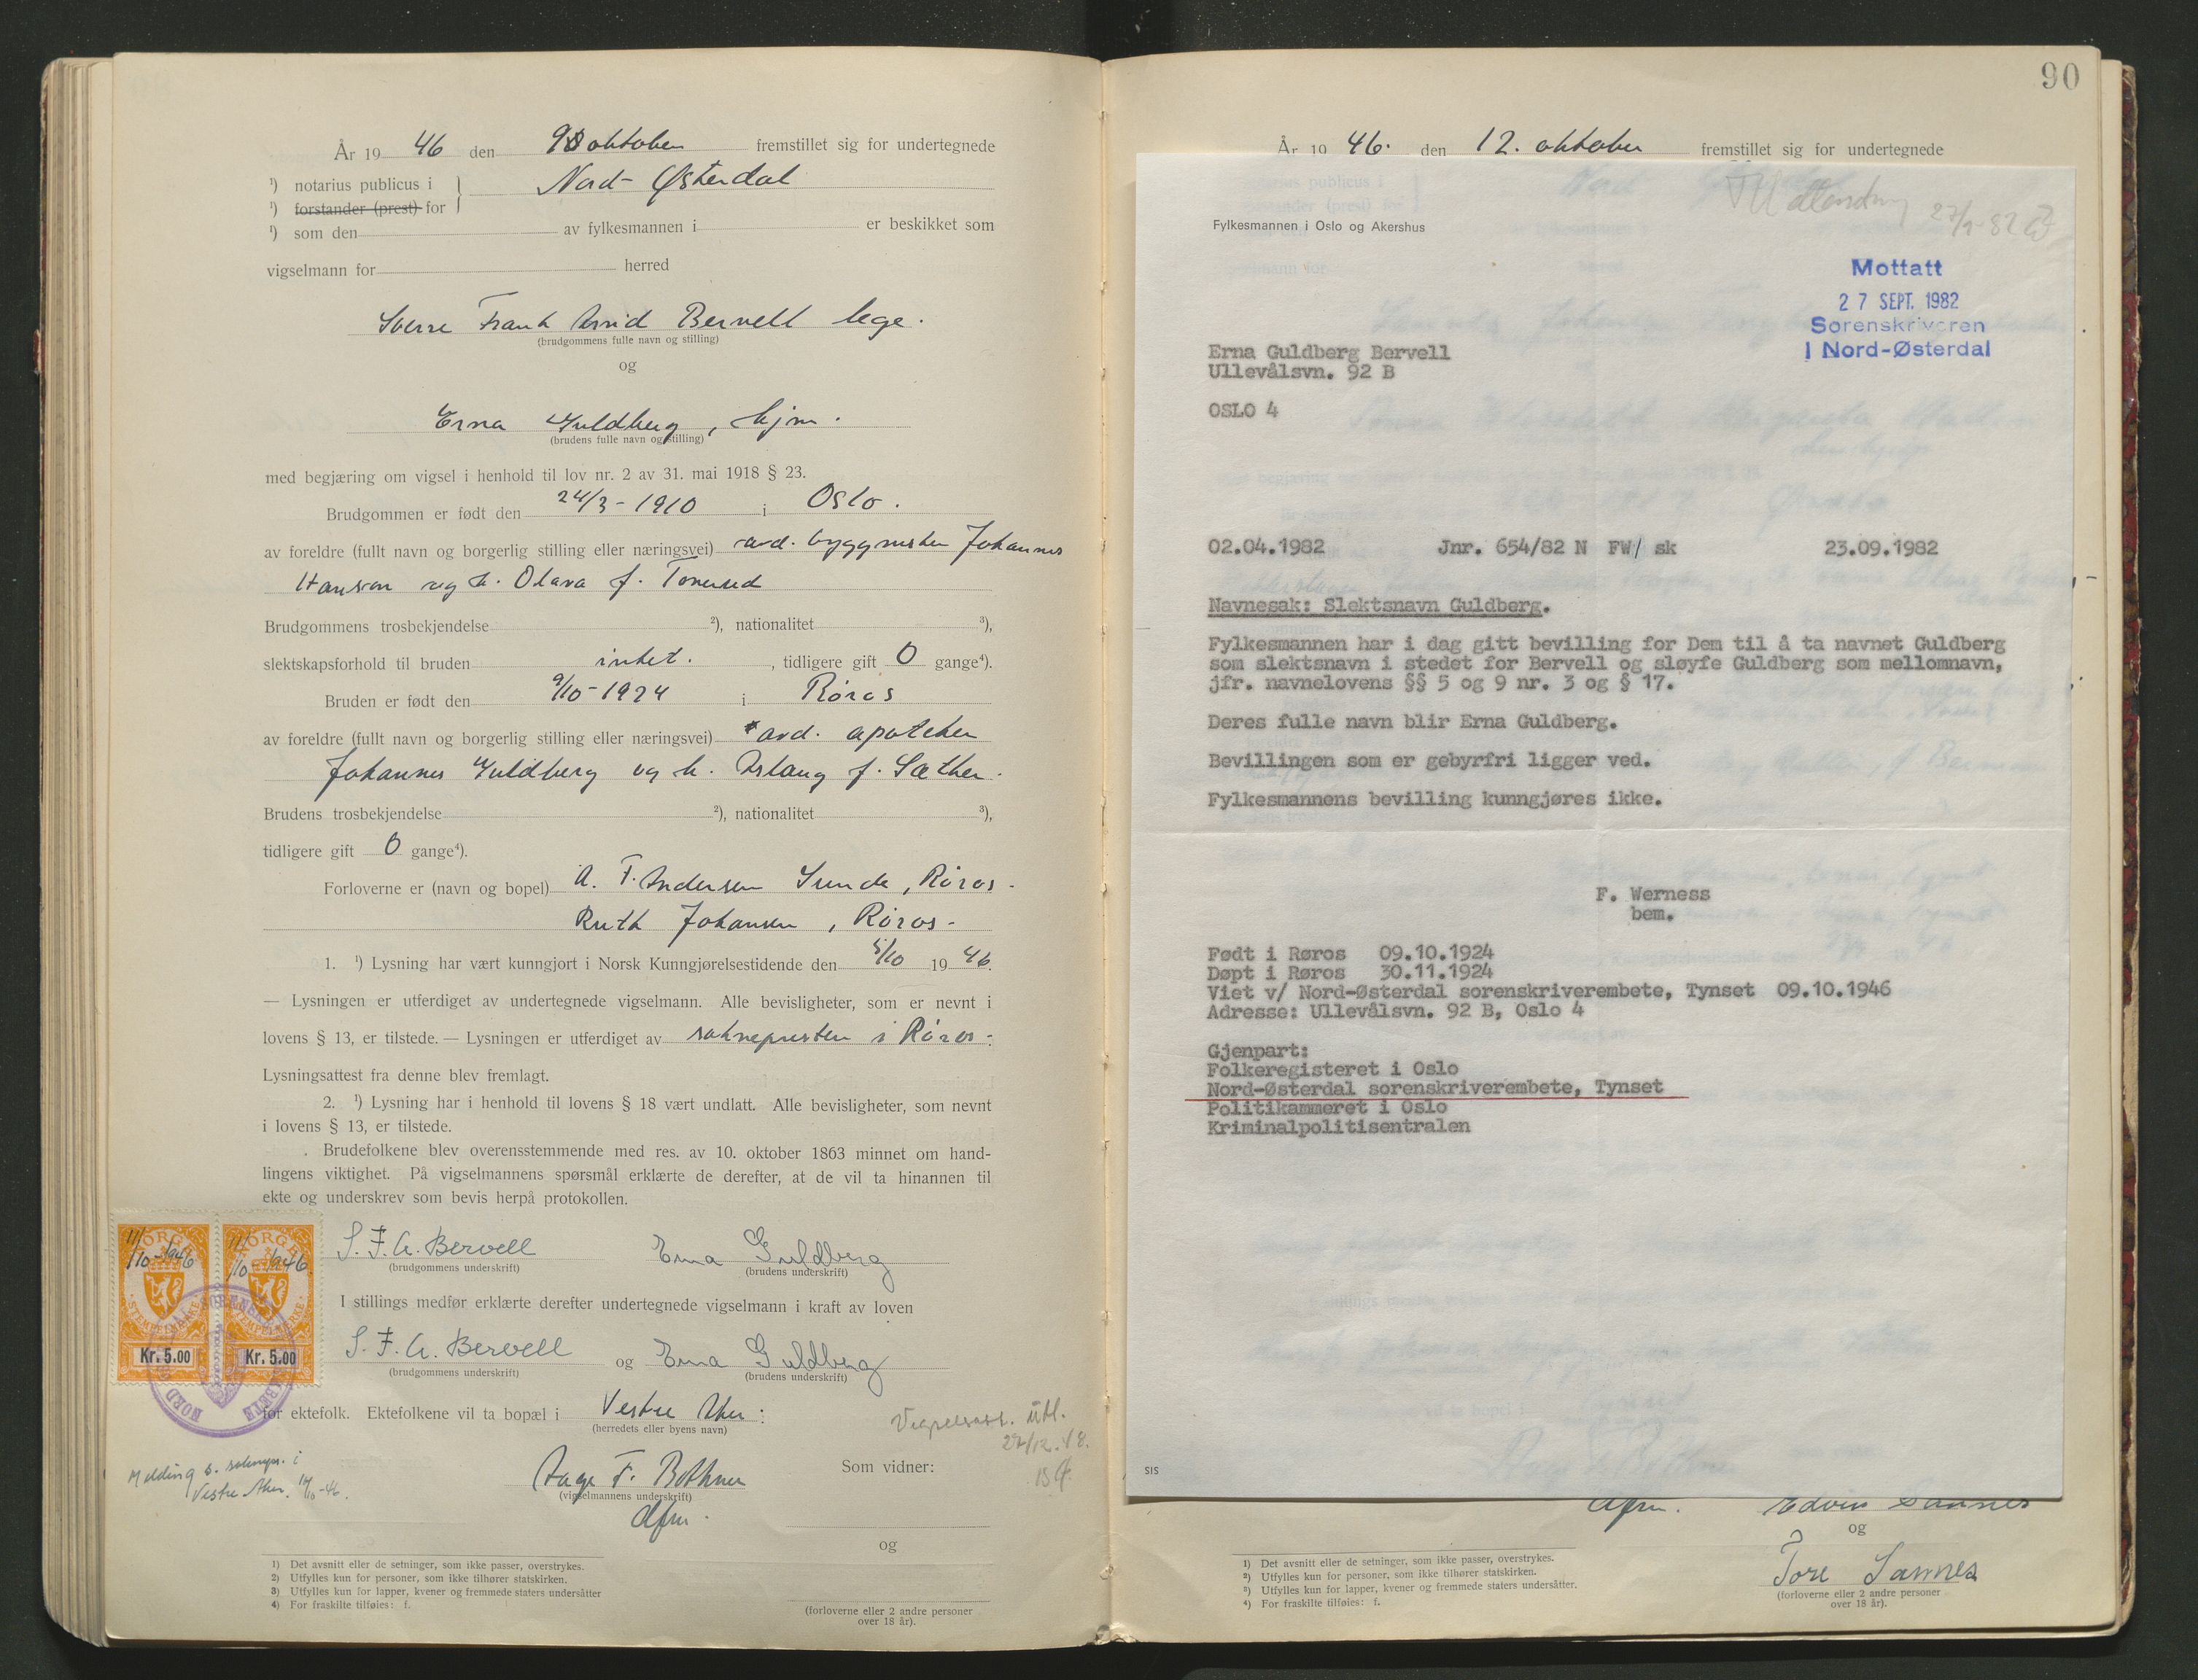 År 19 46 den 9 oktober fremstillet sig for undertegnede
¹) notarius publicus i
¹) forstander (prest) for
Nord-Østerdal
¹) som den av fylkesmannen i er beskikket som
vigselmann for herred
Sverre Frank Arvid Bervell lege.
(brudgommens fulle navn og stilling)
og
Erna Guldberg, hjm.
(brudens fulle navn og stilling)
med begjæring om vigsel i henhold til lov nr. 2 av 31. mai 1918 § 23.
Brudgommen er født den 24/3-1910 i Oslo.
av foreldre (fullt navn og borgerlig stilling eller næringsvei) avd. byggmester Johannes
Hanson og h. Olava f. Tonerud
Brudgommens trosbekjendelse ²), nationalitet ³),
slektskapsforhold til bruden intet. , tidligere gift 0 gange⁴).
Bruden er født den 9/10-1924 i Røros
av foreldre (fullt navn og borgerlig stilling eller næringsvei) avd. apoteker
Johannes Guldberg og h. Aslaug f. Sæther.
Brudens trosbekjendelse ²), nationalitet ³),
tidligere gift 0 gange⁴).
Forloverne er (navn og bopel) A. F. Andersen Sunde, Røros.
Ruth Johansen, Røros-
1. ¹) Lysning har vært kunngjort i Norsk Kunngjørelsestidende den 5/10 19 46.
— Lysningen er utferdiget av undertegnede vigselmann. Alle bevisligheter, som er nevnt i
lovens § 13, er tilstede. — Lysningen er utferdiget av sokneprestens i Røros.
Lysningsattest fra denne blev fremlagt.
2. ¹) Lysning har i henhold til lovens § 18 vært undlatt. Alle bevisligheter, som nevnt
i lovens § 13, er tilstede.
Brudefolkene blev overensstemmende med res. av 10. oktober 1863 minnet om hand-
lingens viktighet. På vigselmannens spørsmål erklærte de derefter, at de vil ta hinannen til
ekte og underskrev som bevis herpå protokollen.
S. F. A. Bervell Erna Guldberg
(brudgommens underskrift) (brudens underskrift)
I stillings medfør erklærte derefter undertegnede vigselmann i kraft av loven
S. F. A. Bervell og Erna Guldberg
(brudgommens underskrift) (brudens underskrift)
for ektefolk. Ektefolkene vil ta bopæl i Vestre Aker.
(herredets eller byens navn)
Vigselsatt. utl.
27/12.48.
Melding s. soknepr. i
Vestre Aker. 14/10-46.
Aage F. Bothner
(vigselmannens underskrift)
dfm.
Som vidner:
og
(forloverne eller 2 andre personer
over 18 år).
1) Det avsnitt eller de setninger, som ikke passer, overstrykes.
2) Utfylles kun for personer, som ikke tilhører statskirken.
3) Utfylles kun for lapper, kvener og fremmede staters undersåtter
4) For fraskilte tilføies: f.
11/10-1946 11/10-1946
NORGE NORGE
STEMPELMERKE STEMPELMERKE
Kr. 5.00 Kr. 5.00
90
År 19 46. den 12. oktober fremstillet sig for undertegnede
27/9-82
Fylkesmannen i Oslo og Akershus
Mottatt
27 SEPT. 1982
Sorenskriveren
i Nord-Østerdal
Erna Guldberg Bervell
Ullevålsvn. 92 B
OSLO 4
02.04.1982 Jnr. 654/82 N FW/ sk 23.09.1982
Navnesak: Slektsnavn Guldberg.
Fylkesmannen har i dag gitt bevilling for Dem til å ta navnet Guldberg
som slektsnavn i stedet for Bervell og sløyfe Guldberg som mellomnavn,
jfr. navnelovens §§ 5 og 9 nr. 3 og § 17.
Deres fulle navn blir Erna Guldberg.
Bevillingen som er gebyrfri ligger ved.
Fylkesmannens bevilling kunngjøres ikke.
F. Werness
bem.
Født i Røros 09.10.1924
Døpt i Røros 30.11.1924
Viet v/ Nord-Østerdal sorenskriverembete, Tynset 09.10.1946
Adresse: Ullevålsvn. 92 B, Oslo 4
Gjenpart:
Folkeregisteret i Oslo
Nord-Østerdal sorenskriverembete, Tynset
Politikammeret i Oslo
Kriminalpolitisentralen
SIS
dfm. Edvin Sannes
og
Tore Sannes
(forloverne eller 2 andre personer
over 18 år).
1) Det avsnitt eller de setninger, som ikke passer, overstrykes.
2) Utfylles kun for personer, som ikke tilhører statskirken.
3) Utfylles kun for lapper, kvener og fremmede staters undersåtter.
4) For fraskilte tilføies: f.